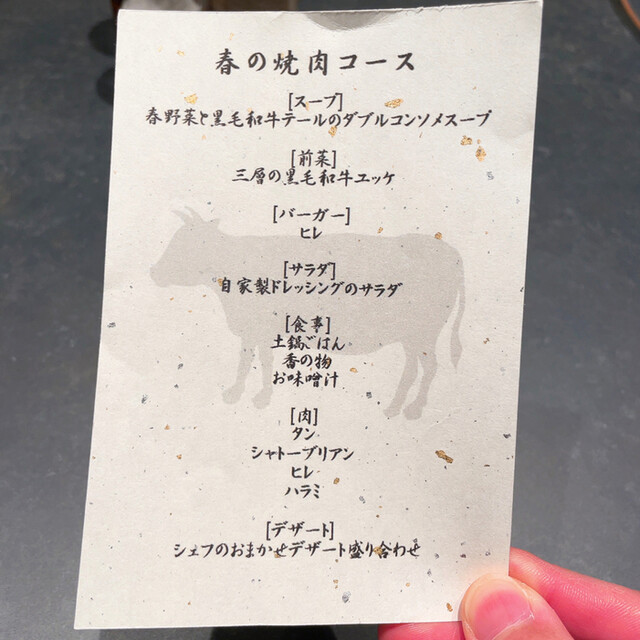 春の焼肉コース
[スープ]
春野菜と黒毛和牛テールのダブルコンソメスープ
[前菜]
三層の黒毛和牛ユッケ
[バーガー]
ヒレ
[サラダ]
自家製ドレッシングのサラダ
[食事]
土鍋ごはん
香の物
お味噌汁
[肉]
タン
シャトーブリアン
ヒレ
ハラミ
[デザート]
シェフのおまかせデザート盛り合わせ